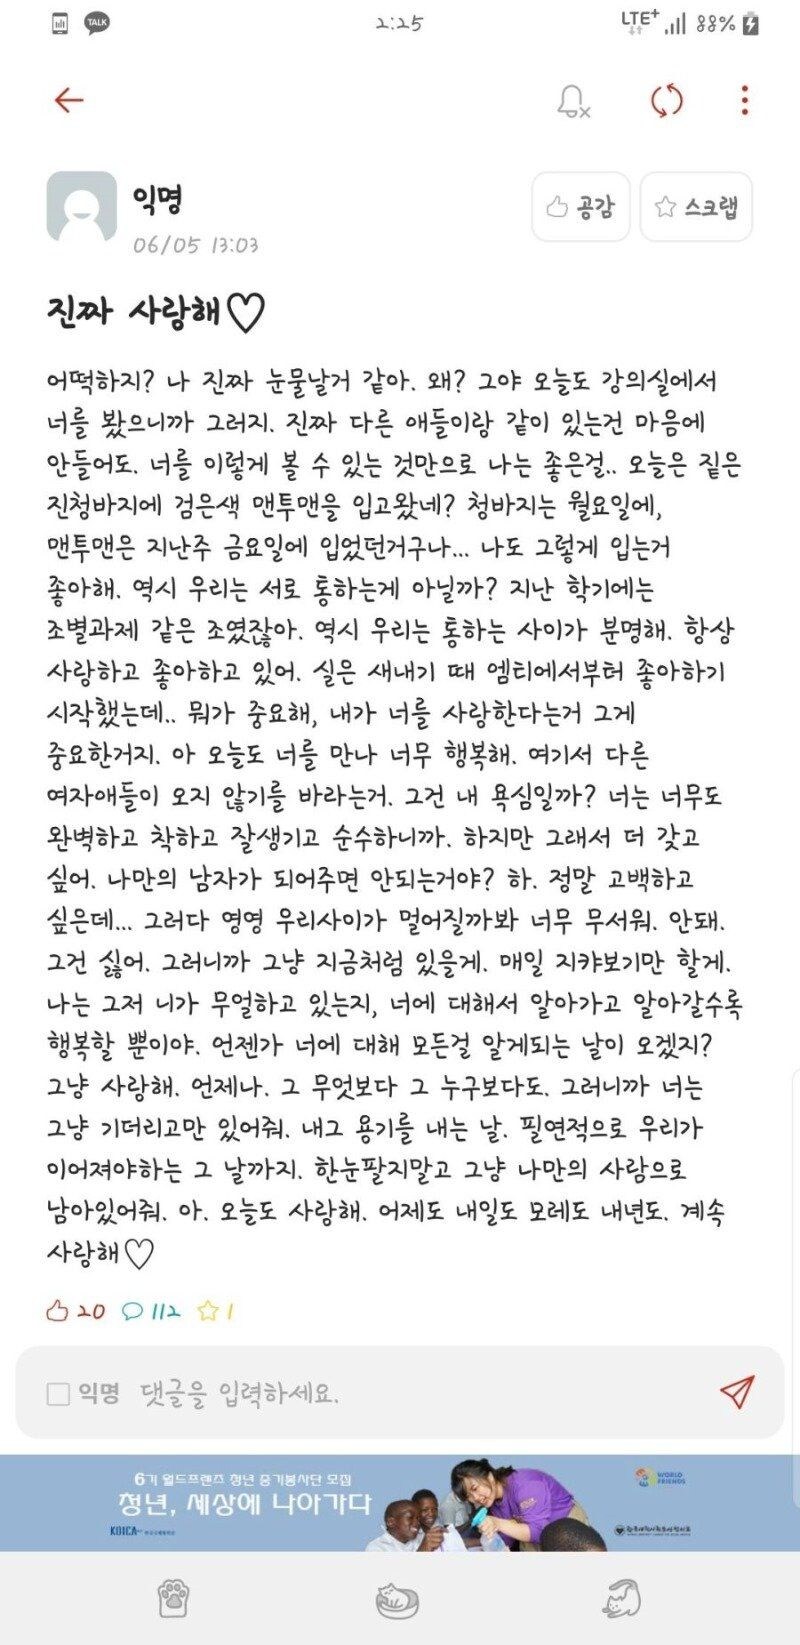 TALK
2:25
LTE+
88%
익명
06/05 13:03
공감
스크랩
진짜 사랑해♡
어떡하지? 나 진짜 눈물날거 같아. 왜? 그야 오늘도 강의실에서
너를 봤으니까 그러지. 진짜 다른 애들이랑 같이 있는건 마음에
안들어도. 너를 이렇게 볼 수 있는 것만으로 나는 좋은걸.. 오늘은 짙은
진청바지에 검은색 맨투맨을 입고왔네? 청바지는 월요일에,
맨투맨은 지난주 금요일에 입었던거구나... 나도 그렇게 입는거
좋아해. 역시 우리는 서로 통하는게 아닐까? 지난 학기에는
조별과제 같은 조였잖아. 역시 우리는 통하는 사이가 분명해. 항상
사랑하고 좋아하고 있어. 실은 새내기 때 엠티에서부터 좋아하기
시작했는데.. 뭐가 중요해, 내가 너를 사랑한다는거 그게
중요한거지. 아 오늘도 너를 만나 너무 행복해. 여기서 다른
여자애들이 오지 않기를 바라는거. 그건 내 욕심일까? 너는 너무도
완벽하고 착하고 잘생기고 순수하니까. 하지만 그래서 더 갖고
싶어. 나만의 남자가 되어주면 안되는거야? 하. 정말 고백하고
싶은데... 그러다 영영 우리사이가 멀어질까봐 너무 무서워. 안돼.
그건 싫어. 그러니까 그냥 지금처럼 있을게. 매일 지캬보기만 할게.
나는 그저 니가 무얼하고 있는지, 너에 대해서 알아가고 알아갈수록
행복할 뿐이야. 언젠가 너에 대해 모든걸 알게되는 날이 오겠지?
그냥 사랑해. 언제나. 그 무엇보다 그 누구보다도. 그러니까 너는
그냥 기더리고만 있어줘. 내그 용기를 내는 날. 필연적으로 우리가
이어져야하는 그 날까지. 한눈팔지말고 그냥 나만의 사람으로
남아있어줘. 아. 오늘도 사랑해. 어제도 내일도 모레도 내년도. 계속
사랑해♡
20 112 1
익명 댓글을 입력하세요.
6기 월드프렌즈 청년 중기봉사단 모집
청년, 세상에 나아가다
WORLD
FRIENDS
KOICA